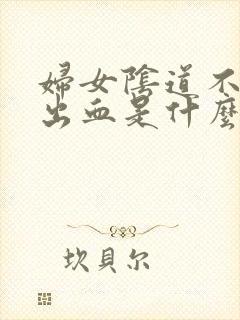 婦女陰道不
出血是什麼
坎貝尔